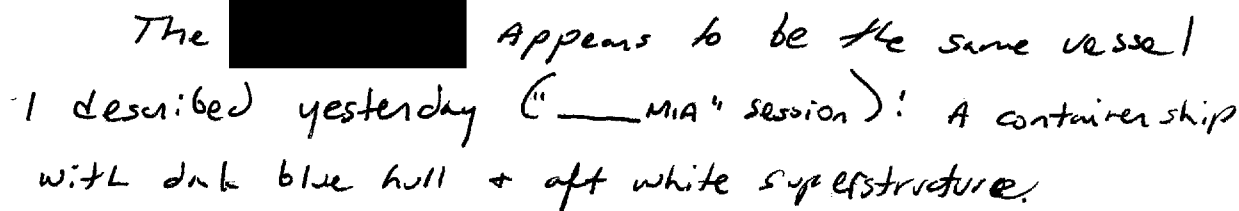 The Appears to be the same vessel
I described yesterday ("___MIA" session): A container ship
with dark blue hull + aft white superstructure.